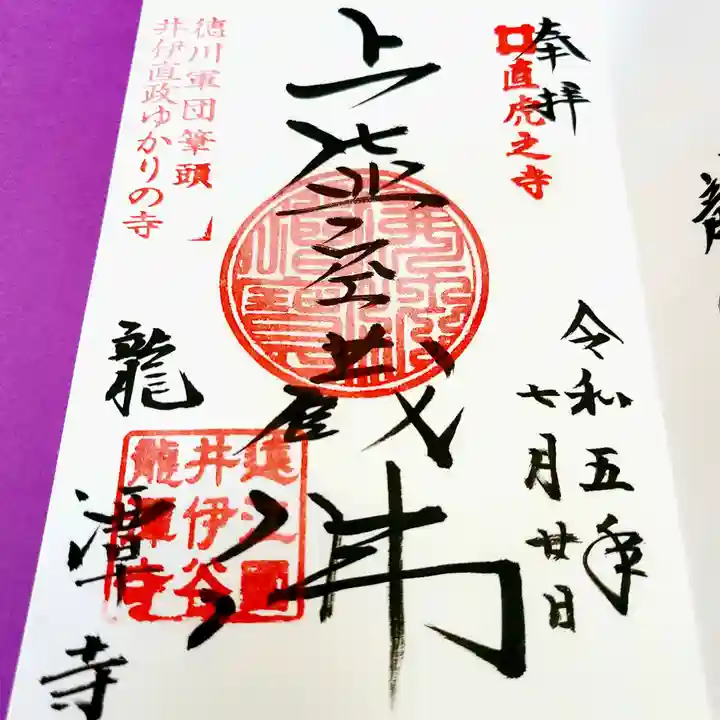 奉拝
直虎之寺
令和五年
七月廿日
虚空蔵
佛
徳川軍団筆頭
井伊直政ゆかりの寺
龍潭寺
遠江國
井伊谷
龍潭寺